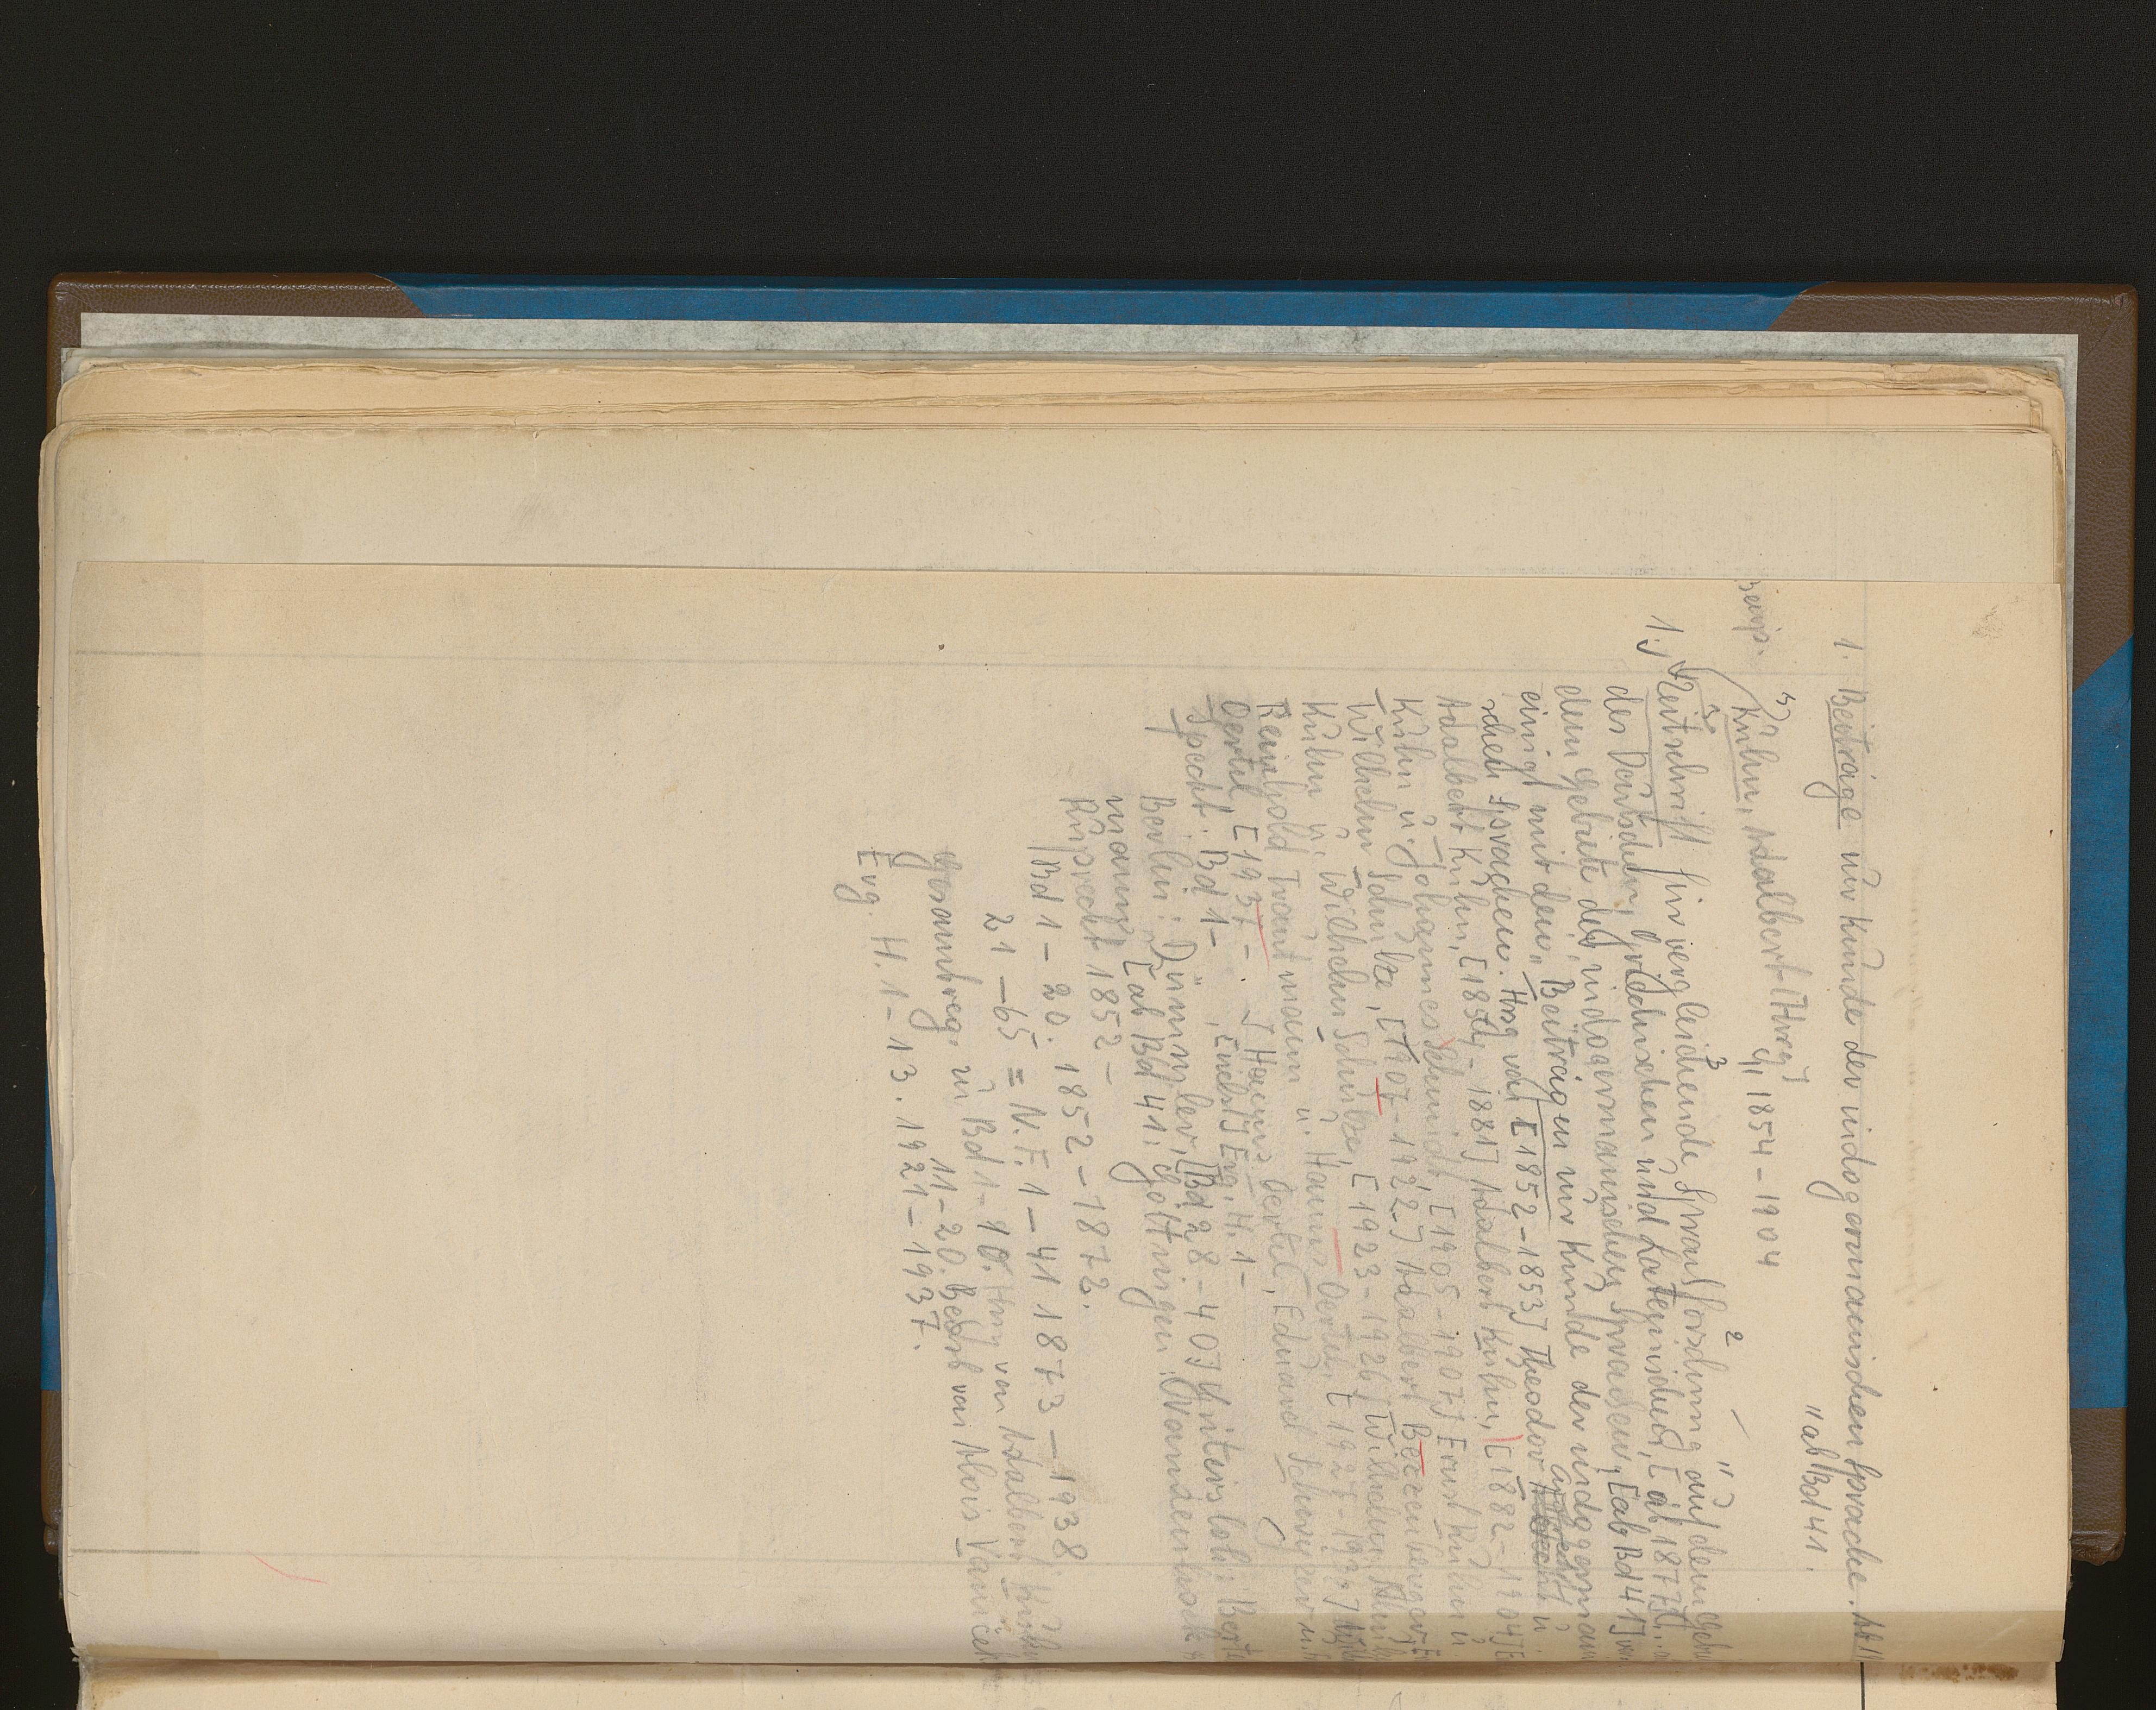 1. Beiträge zur Kunde der indogermanischen Sprache.
"ab Bd 41.
Kuhn, Adalbert [Hrsg], 1854-1904
1., Zeitschrift für vergleichende Sprachforschung auf dem Gebie
des Deutschen, Griechischen und Lateinischen, [ab 1877:
dem Gebiete der indogermanischen Sprachen, [ab Bd 41] ver
einigt mit den "Beiträgen zur Kunde der indogerman
schen Sprachen. Hrsg von [1852-1853] Theodor Aufrecht u.
Adalbert Kuhn, [1854-1881] Adalbert Kuhn, [1882-1904] E
Kuhn u. Johannes Schmidt, [1905-1907] Ernst Kuhn u
Wilhelm Schulze, [1907-1922] Adalbert Bezzenberger, E
Kuhn u. Wilhelm Schulze, [1923-1926] Wilhelm Schulze,
Reinhold Trautmann u. Hanns Oertel, [1927-1937]
Hanns Oertel, Eduard Schwyzer u.
Oertel, [1937-.
Specht. Bd 1- , [nebst] Erg. H. 1-
Berlin: Dümmler, [Bd 28-40] Gütersloh: Berte
mann, [ab Bd 41:] Göttingen: Vandenhoeck &
Ruprecht 1852-
Bd 1-20. 1852-1872.
21-65 = N.F. 1-41 1873-1938
Gesamtreg. zu Bd 1-10. Hrsg von Adalbert Kuhn
11-20. Bearb von Alois Vaniček
Erg. H. 1-13. 1921-1937.